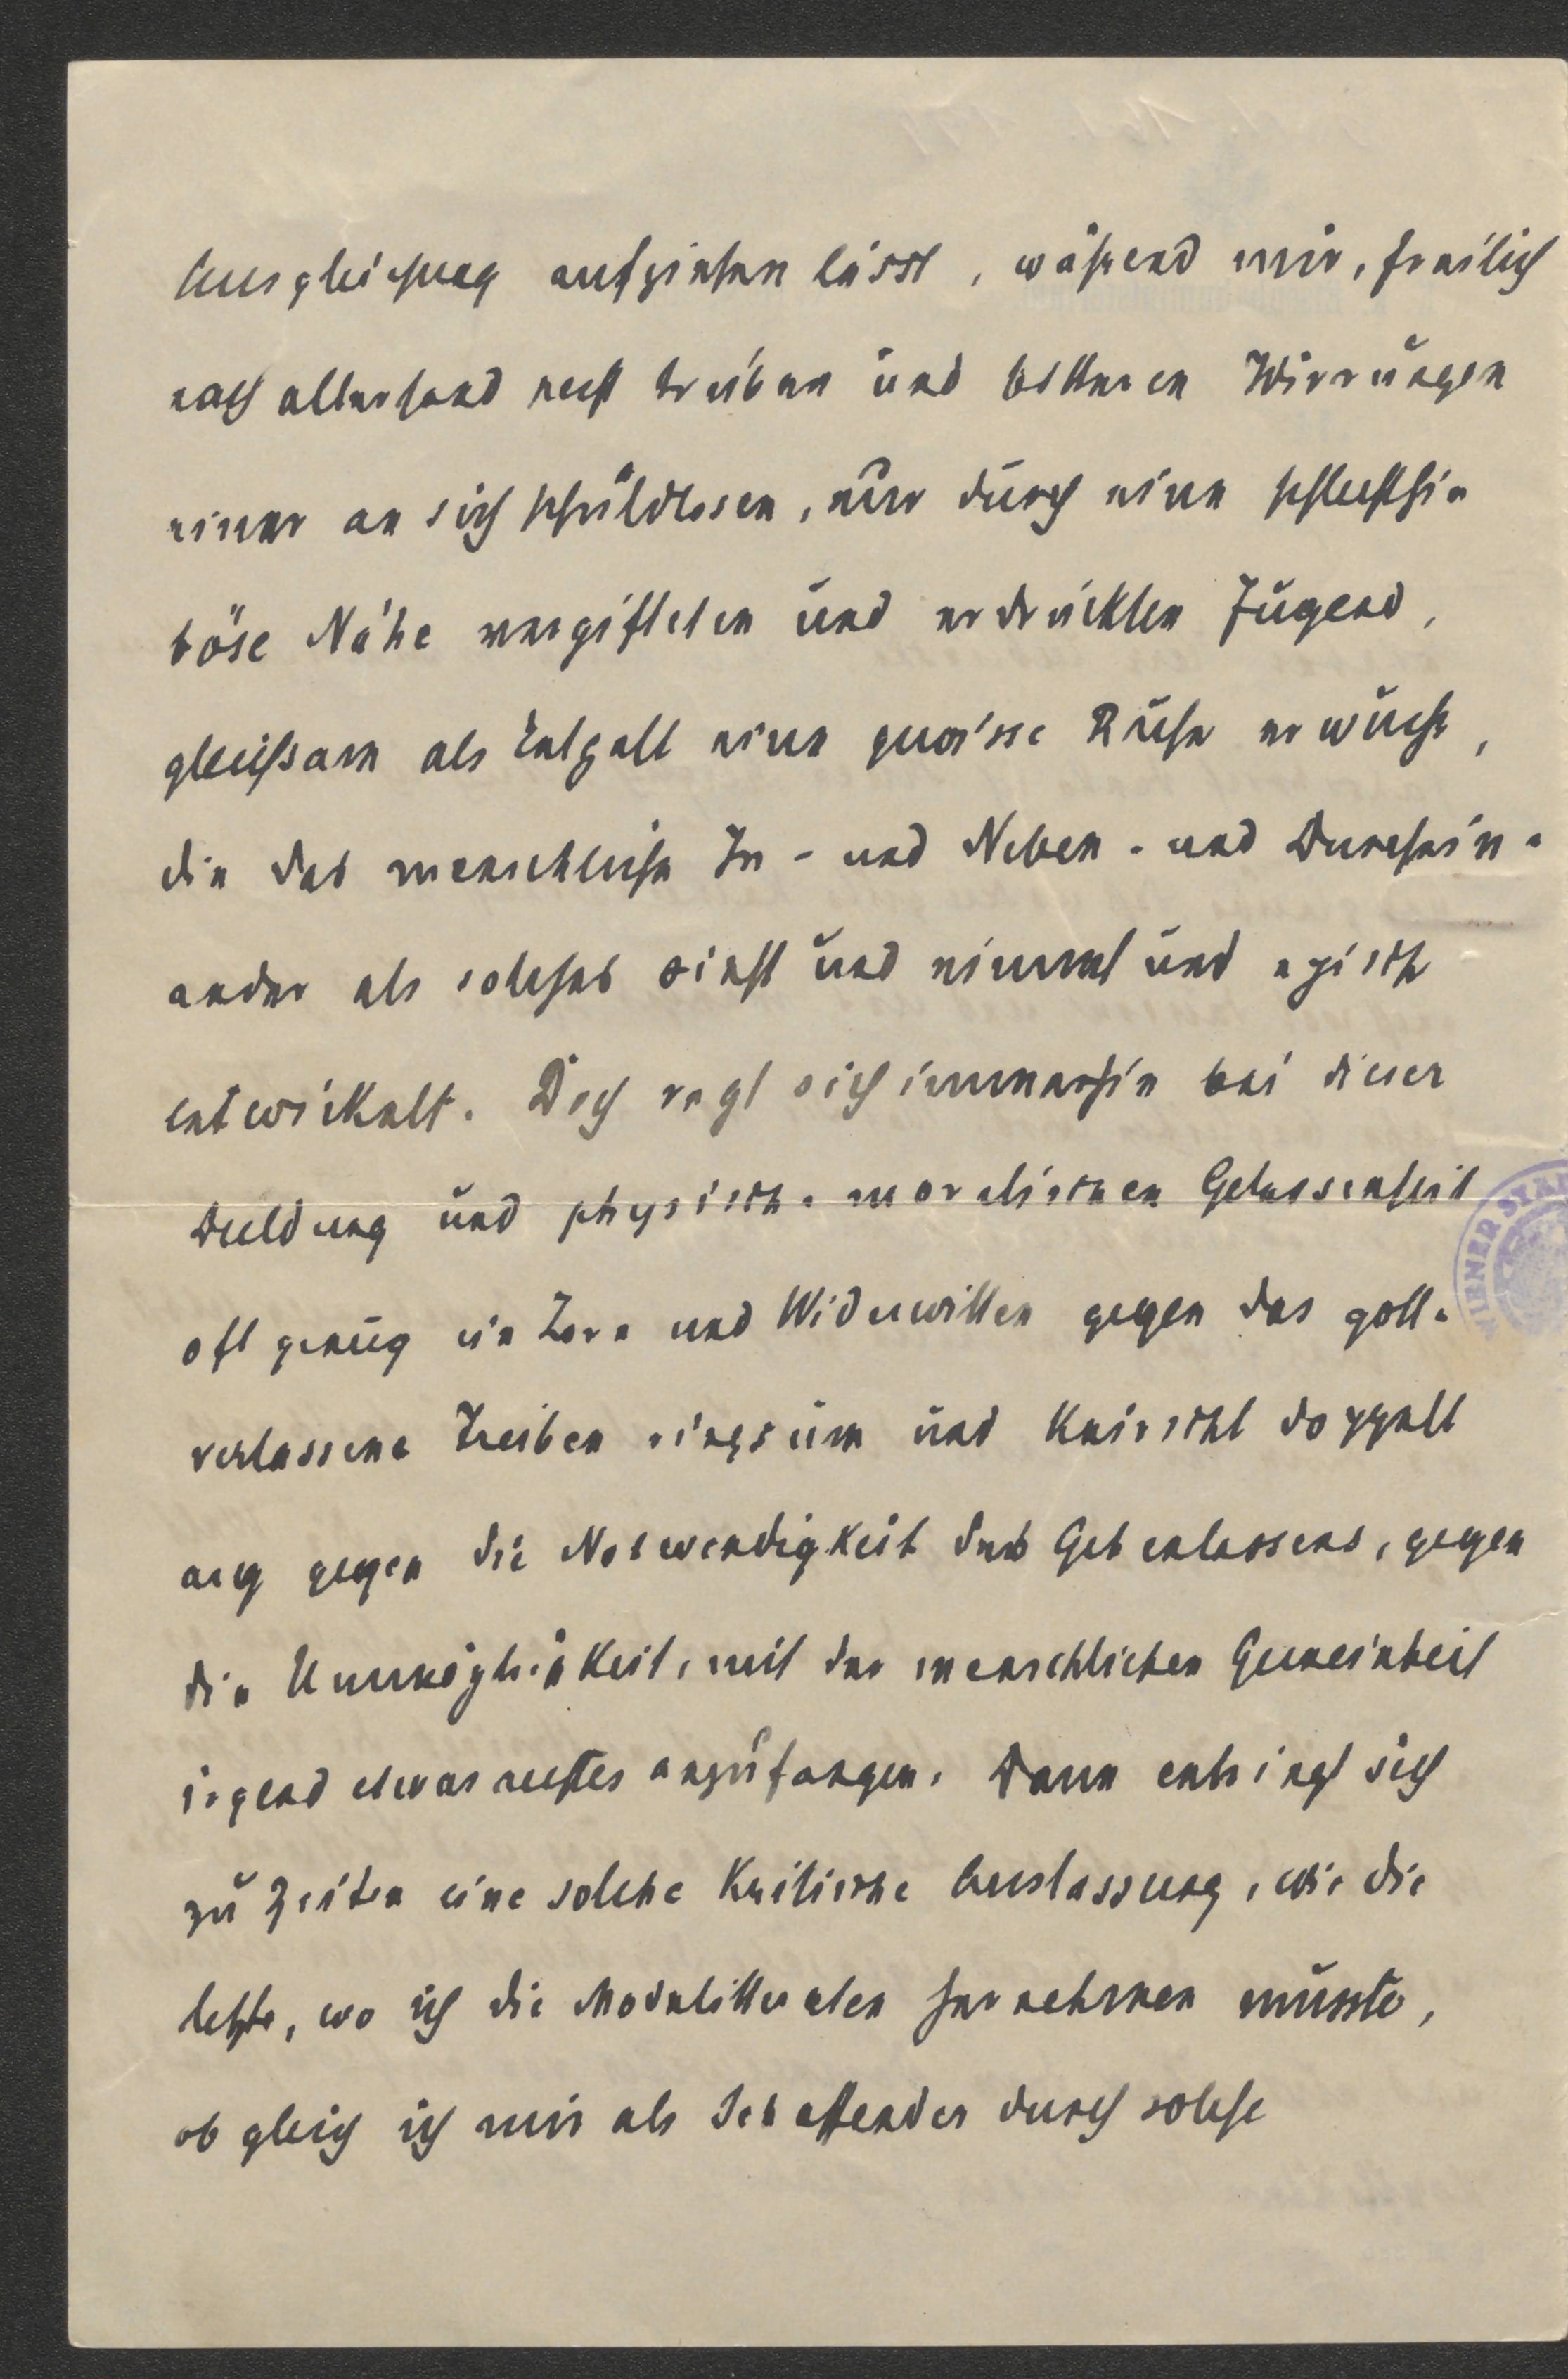 Ausgleichung aufziehen lässt, während mir, freilich
nach allerhand recht trüben und bitteren Wirrungen
einer an sich schuldlosen, nur durch eine schlechthin
böse Nähe vergifteten und erdrückten Jugend,
gleichsam als Entgelt eine gewisse Ruhe erwuchs,
die das menschliche In- und Neben- und Durchein-
ander als solches sieht und nimmt und episch
entwickelt. Doch regt sich immerhin bei dieser
Duldung und physisch-moralischen Gelassenheit
oft genug ein Zorn und Widerwillen gegen das gott-
verlassene Treiben ringsum und knirscht doppelt
arg gegen die Notwendigkeit des Gehenlassens, gegen
die Unmöglichkeit, mit der menschlichen Gemeinheit
irgend etwas rechtes anzufangen. Dann entringt sich
zu Zeiten eine solche kritische Auslassung, wie die
letzte, wo ich die Modelitteraten hernehmen musste,
obgleich ich mir als Schaffender durch solche
WIENER STA